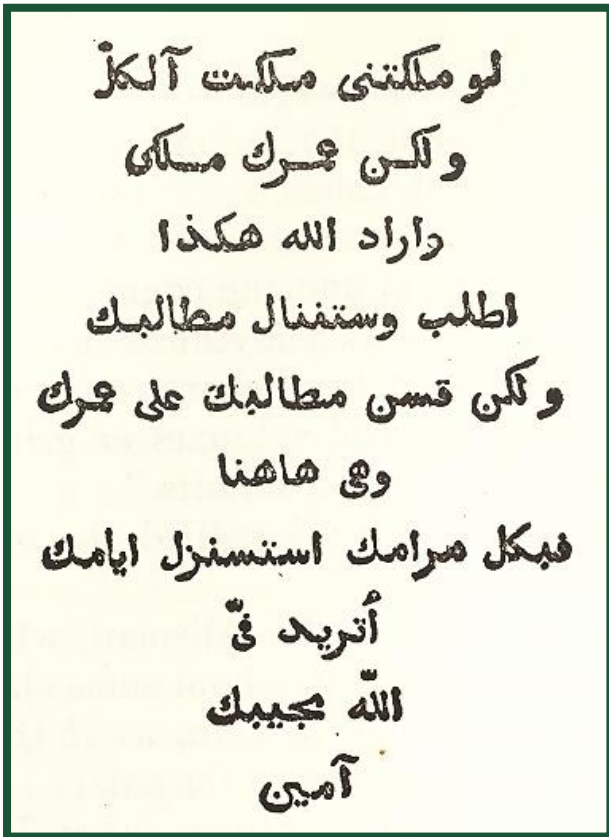 لو ملكتنى ملكت آلكلّ
و لكن عمرك ملكى
واراد الله هكذا
اطلب وستننال مطالبك
و لكن قسن مطالبك على عمرك
وهى هاهنا
فبكل مرامك استسنزل ايامك
أتريد فىّ
اللّه مجيبك
آمين